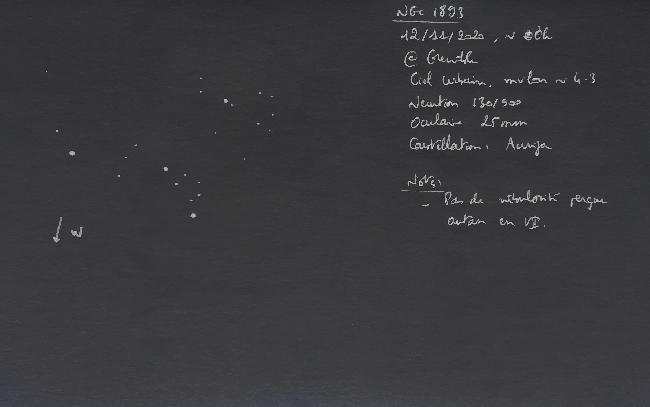 NGC 1893
12/11/2020, ~ 0h
@ Grenoble
Ciel urbain, mvlon ~ 4.3
Newton 130/900
Oculaire 25mm
Constellation: Auriga
Notes:
- Pas de nébulosité perçue
en VI.
W